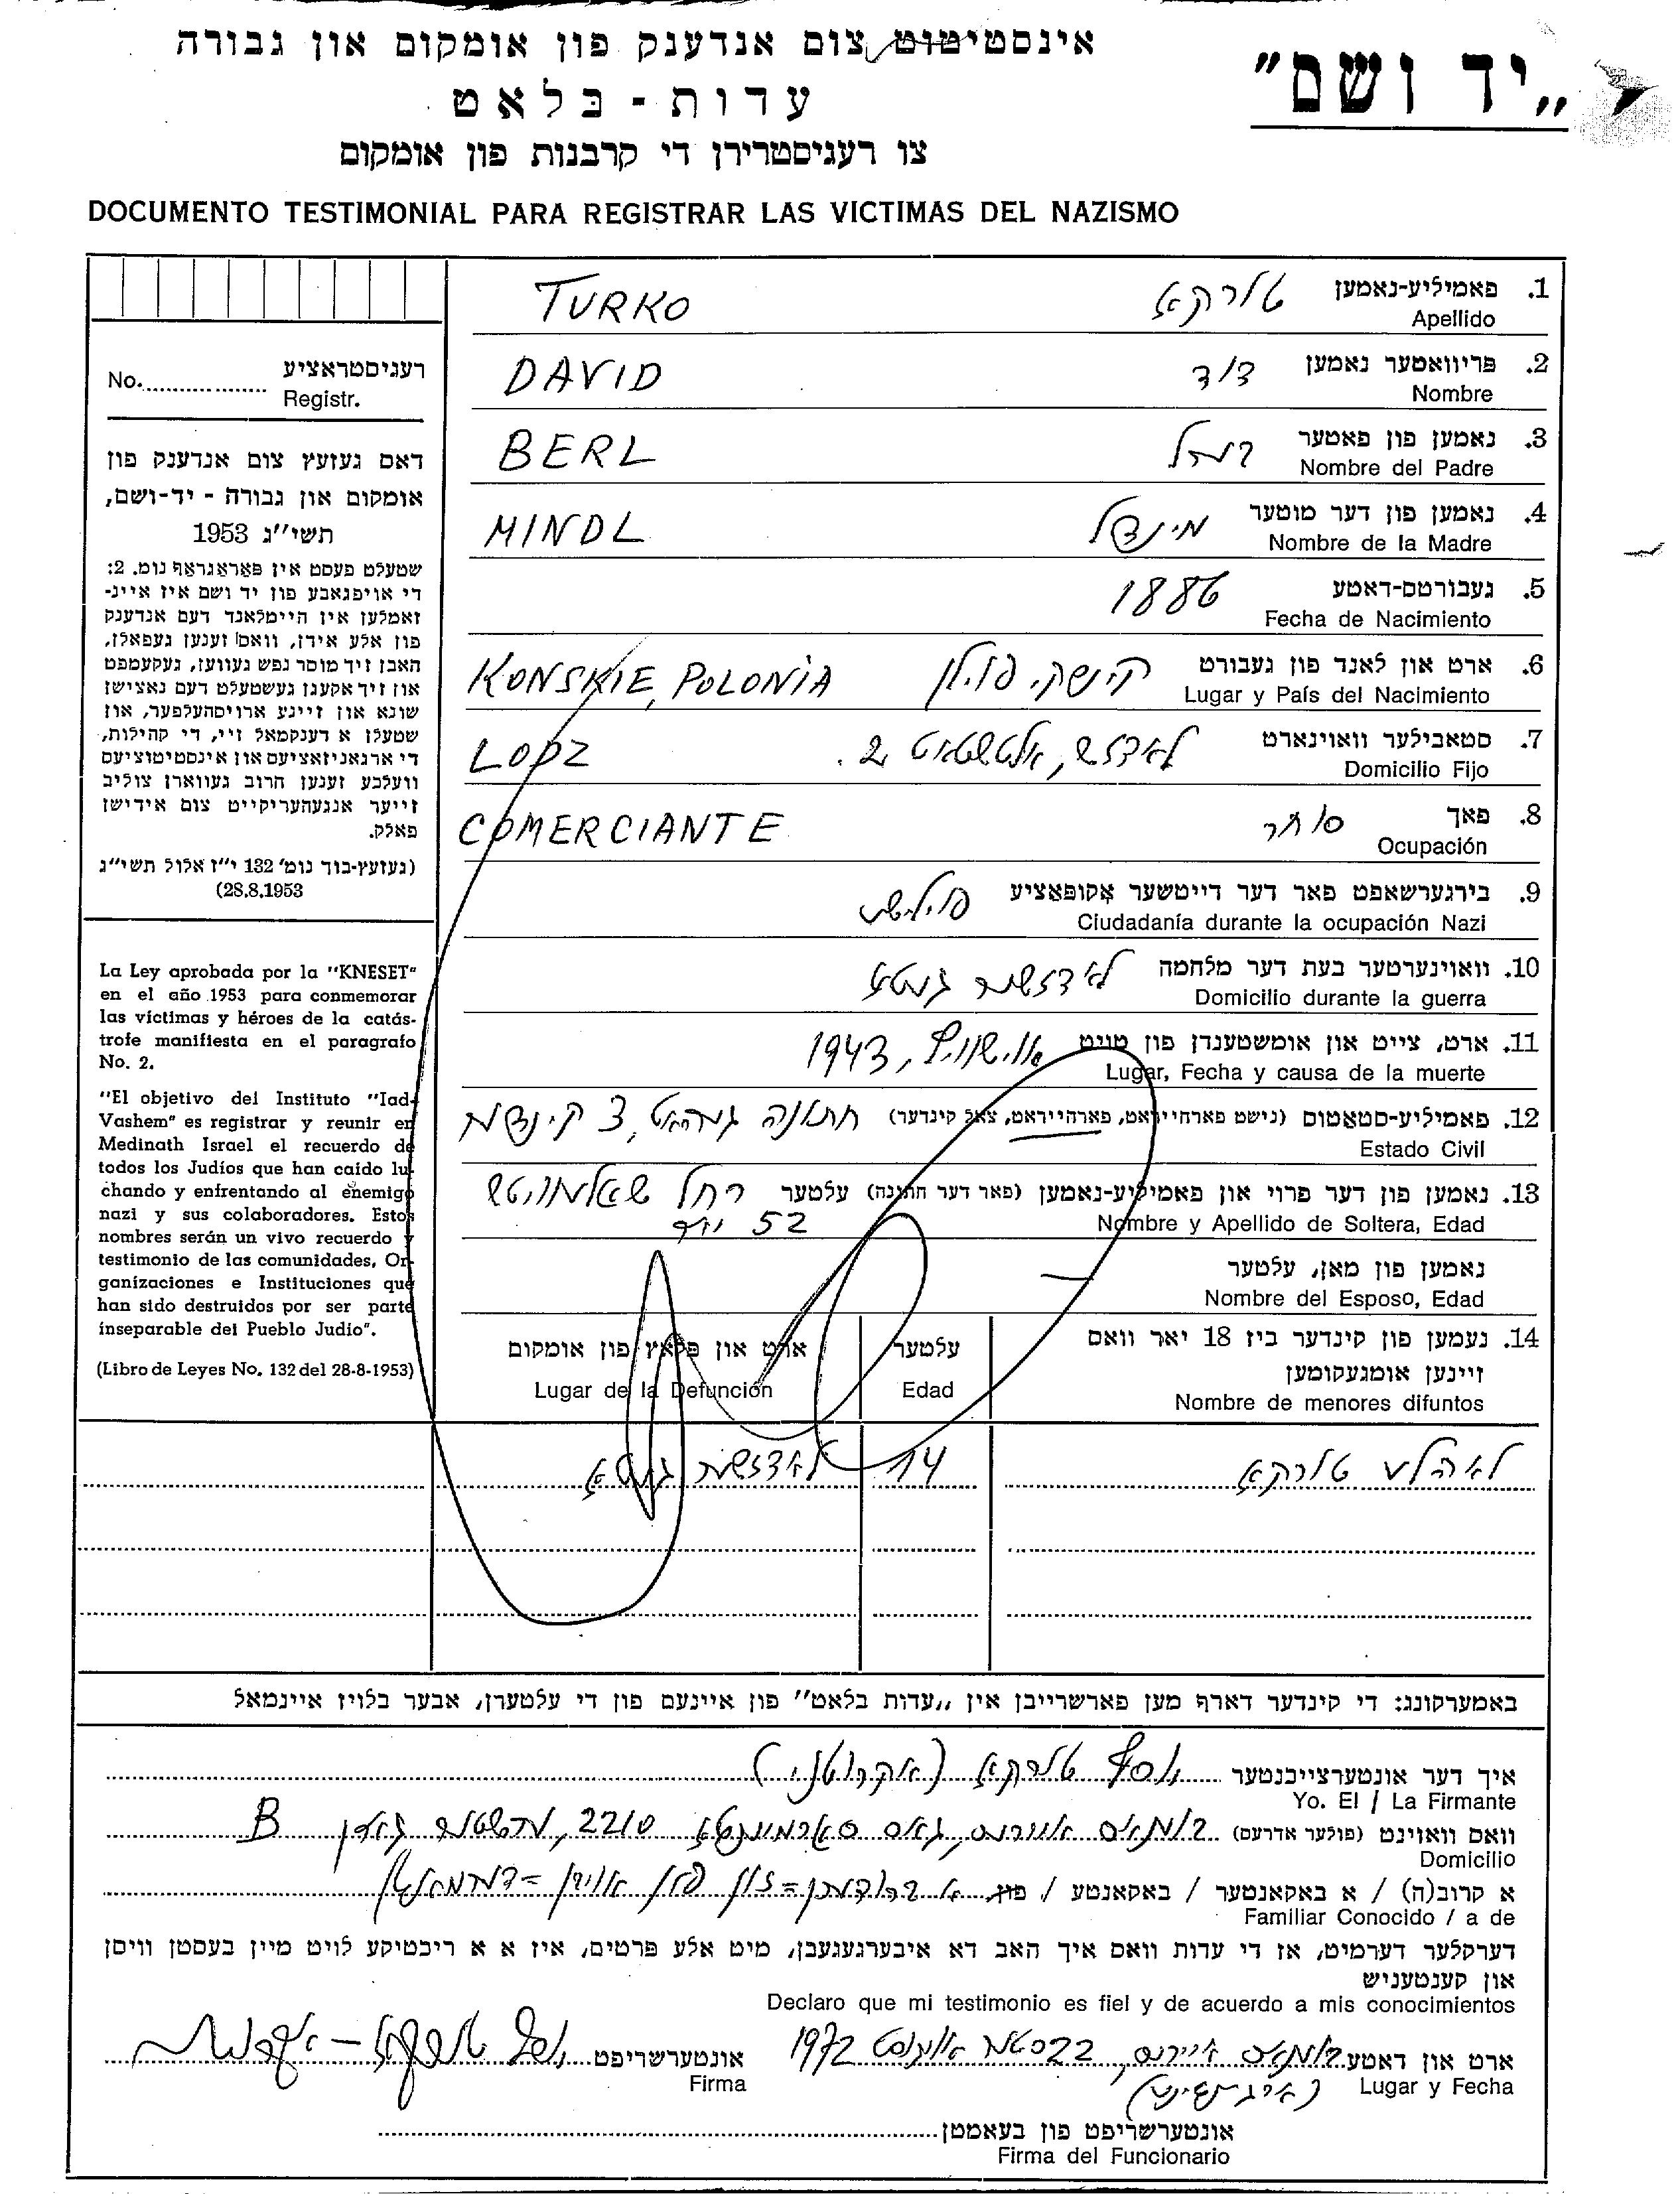 „יד ושם"
אינסטיטוט צום אנדענק פון אומקום און גבורה
עדות - בלאט
צו רעגיסטרירן די קרבנות פון אומקום
DOCUMENTO TESTIMONIAL PARA REGISTRAR LAS VICTIMAS DEL NAZISMO
רעגיסטראציע
No.
Registr.
דאס געזעץ צום אנדענק פון
אומקום און גבורה - יד-ושם,
תשי"ג 1953
שטעלט פעסט אין פאראגראף נומ. 2:
די אויפגאבע פון יד ושם איז איינ-
זאמלען אין היימלאנד דעם אנדענק
פון אלע אידן, וואס זענען געפאלן,
האבן זיך מוסר נפש געווען, געקעמפט
און זיך אקעגן געשטעלט דעם נאצישן
שונא און זיינע ארויסהעלפער, און
שטעלן א דענקמאל זיי, די קהילות,
די ארגאניזאציעס און אינסטיטוציעס
וועלכע זענען חרוב געווארן צוליב
זייער אנגעהעריקייט צום אידישן
פאלק.
(געזעץ-בוך נומ' 132 י"ז אלול תשי"ג
28.8.1953)
La Ley aprobada por la "KNESET"
en el año 1953 para conmemorar
las víctimas y héroes de la catás-
trofe manifiesta en el paragrafo
No. 2.
"El objetivo del Instituto "Iad-
Vashem" es registrar y reunir en
Medinath Israel el recuerdo de
todos los Judíos que han caído lu-
chando y enfrentando al enemigo
nazi y sus colaboradores. Estos
nombres serán un vivo recuerdo y
testimonio de las comunidades, Or-
ganizaciones e Instituciones que
han sido destruidos por ser parte
inseparable del Pueblo Judío".
(Libro de Leyes No. 132 del 28-8-1953)
1. פאמיליע-נאמען טורקא TURKO
Apellido
2. פריוואטער נאמען דוד DAVID
Nombre
3. נאמען פון פאטער בערל BERL
Nombre del Padre
4. נאמען פון דער מוטער מינדל MINDL
Nombre de la Madre
5. געבורטס-דאטע 1886
Fecha de Nacimiento
6. ארט און לאנד פון געבורט קינשק, פוילן KONSKIE, POLONIA
Lugar y País del Nacimiento
7. סטאבילער וואוינארט לאדזש, אלטשטאט 2. LODZ
Domicilio Fijo
8. פאך סוחר COMERCIANTE
Ocupación
9. בירגערשאפט פאר דער דייטשער אקופאציע פויליש
Ciudadanía durante la ocupación Nazi
10. וואוינערטער בעת דער מלחמה לאדזשער געטא
Domicilio durante la guerra
11. ארט, צייט און אומשטענדן פון טויט אוישוויץ, 1943
Lugar, Fecha y causa de la muerte
12. פאמיליע-סטאטוס (נישט פארהייראט, פארהייראט, צאל קינדער) חתונה געהאט, 3 קינדער
Estado Civil
13. נאמען פון דער פרוי און פאמיליע-נאמען (פאר דער חתונה) עלטער רחל
52 יאר
Nombre y Apellido de Soltera, Edad
נאמען פון מאן, עלטער
Nombre del Esposo, Edad
14. נעמען פון קינדער ביז 18 יאר וואס
זיינען אומגעקומען
Nombre de menores difuntos
עלטער
Edad
ארט און פלאץ פון אומקום
Lugar de la Defunción
לאהלע טורקא 14 לאדזשער געטא
באמערקונג: די קינדער דארף מען פארשרייבן אין „עדות בלאט" פון איינעם פון די עלטערן, אבער בלויז איינמאל
איך דער אונטערצייכנטער יוסף טורקא (אקרוטני)
Yo. El / La Firmante
וואס וואוינט (פולער אדרעס) בוענאס איירעס, גאס סארמיענטא 2210, ערשטער גארן B
Domicilio
א קרוב(ה) / א באקאנטער / באקאנטע / פון א ברודער'ס זון פון אויבן דערמאנטן
Familiar Conocido / a de
דערקלער דערמיט, אז די עדות וואס איך האב דא איבערגעגעבן, מיט אלע פרטים, איז א א ריכטיקע לויט מיין בעסטן וויסן
און קענטעניש
Declaro que mi testimonio es fiel y de acuerdo a mis conocimientos
ארט און דאטע בוענאס איירעס, 22סטער אויגוסט 1972
(ארגענטינע)
Lugar y Fecha
אונטערשריפט יוסף טורקא
Firma
אונטערשריפט פון בעאמטן
Firma del Funcionario